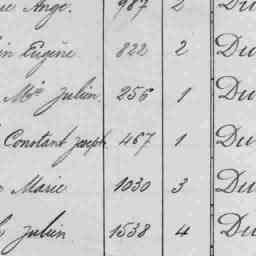 Ange. 987 2 Du
Eugène 822 2 Du
Julien. 256 1 Du
Constant Joseph 467 1 Du
Marie 1030 3 Du
Julien 1538 4 Du